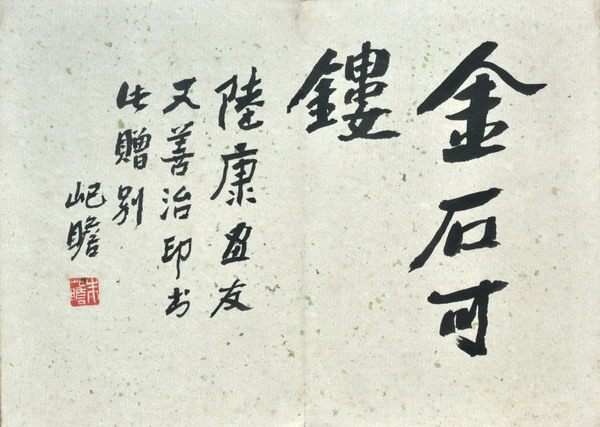 金石可
鏤
陸康画友
又善治印书
此贈别
屺瞻